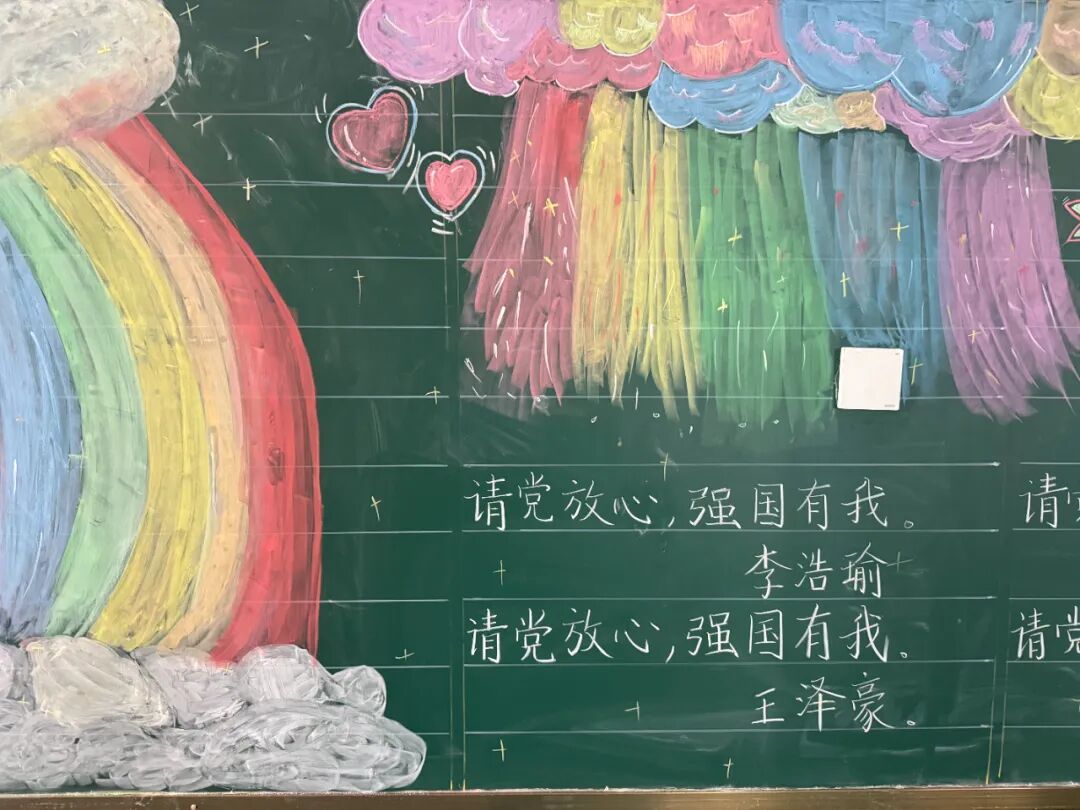 请党放心,强国有我。
李浩瑜
请党放心,强国有我。
王泽豪。
请
请党